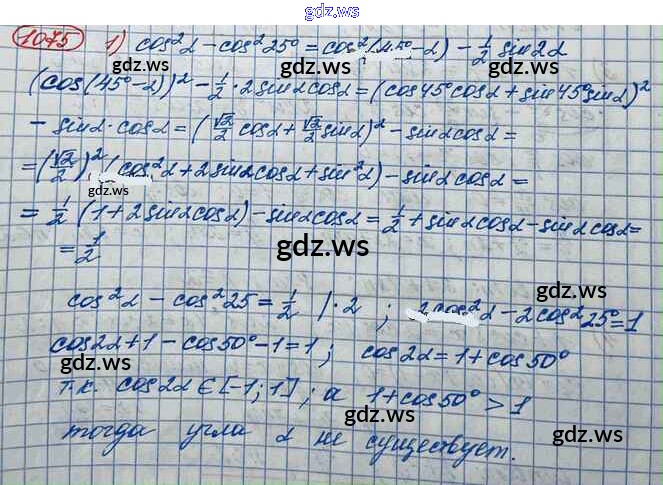 gdz.ws
gdz.ws
1075 1) cos²α – cos²25° = cos²(45° – α) – 1/2 sin2α
(cos(45° – α))² – 1/2 · 2 sinα cosα = (cos45° cosα + sin45° sinα)²
gdz.ws
– sinα · cosα = (√2/2 cosα + √2/2 sinα)² – sinα cosα =
= (√2/2)² (cos²α + 2 sinα cosα + sin²α) – sinα cosα =
gdz.ws
= 1/2 (1 + 2 sinα cosα) – sinα cosα = 1/2 + sinα cosα – sinα cosα =
= 1/2
gdz.ws
cos²α – cos²25 = 1/2 | · 2 ; 2cos²α – 2cos²25° = 1
gdz.ws
cos2α + 1 – cos50° – 1 = 1 ; cos2α = 1 + cos50°
т.к. cos2α ∈ [–1; 1] ; а 1 + cos50° > 1
тогда угла α не существует.
gdz.ws
gdz.ws